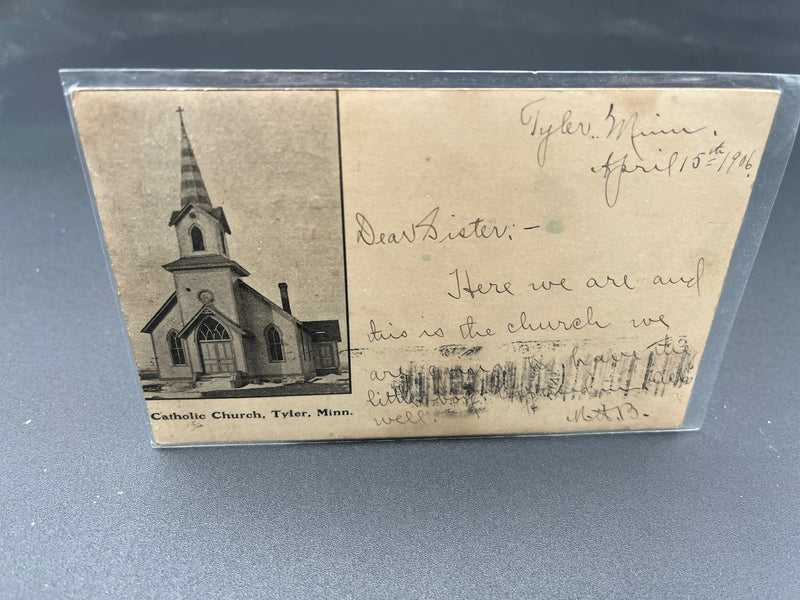 Tyler. Minn.
April 15th 1906.
Dear Sister:-
Here we are and
this is the church we
are have the
little
well. M.A.B.
Catholic Church, Tyler, Minn.